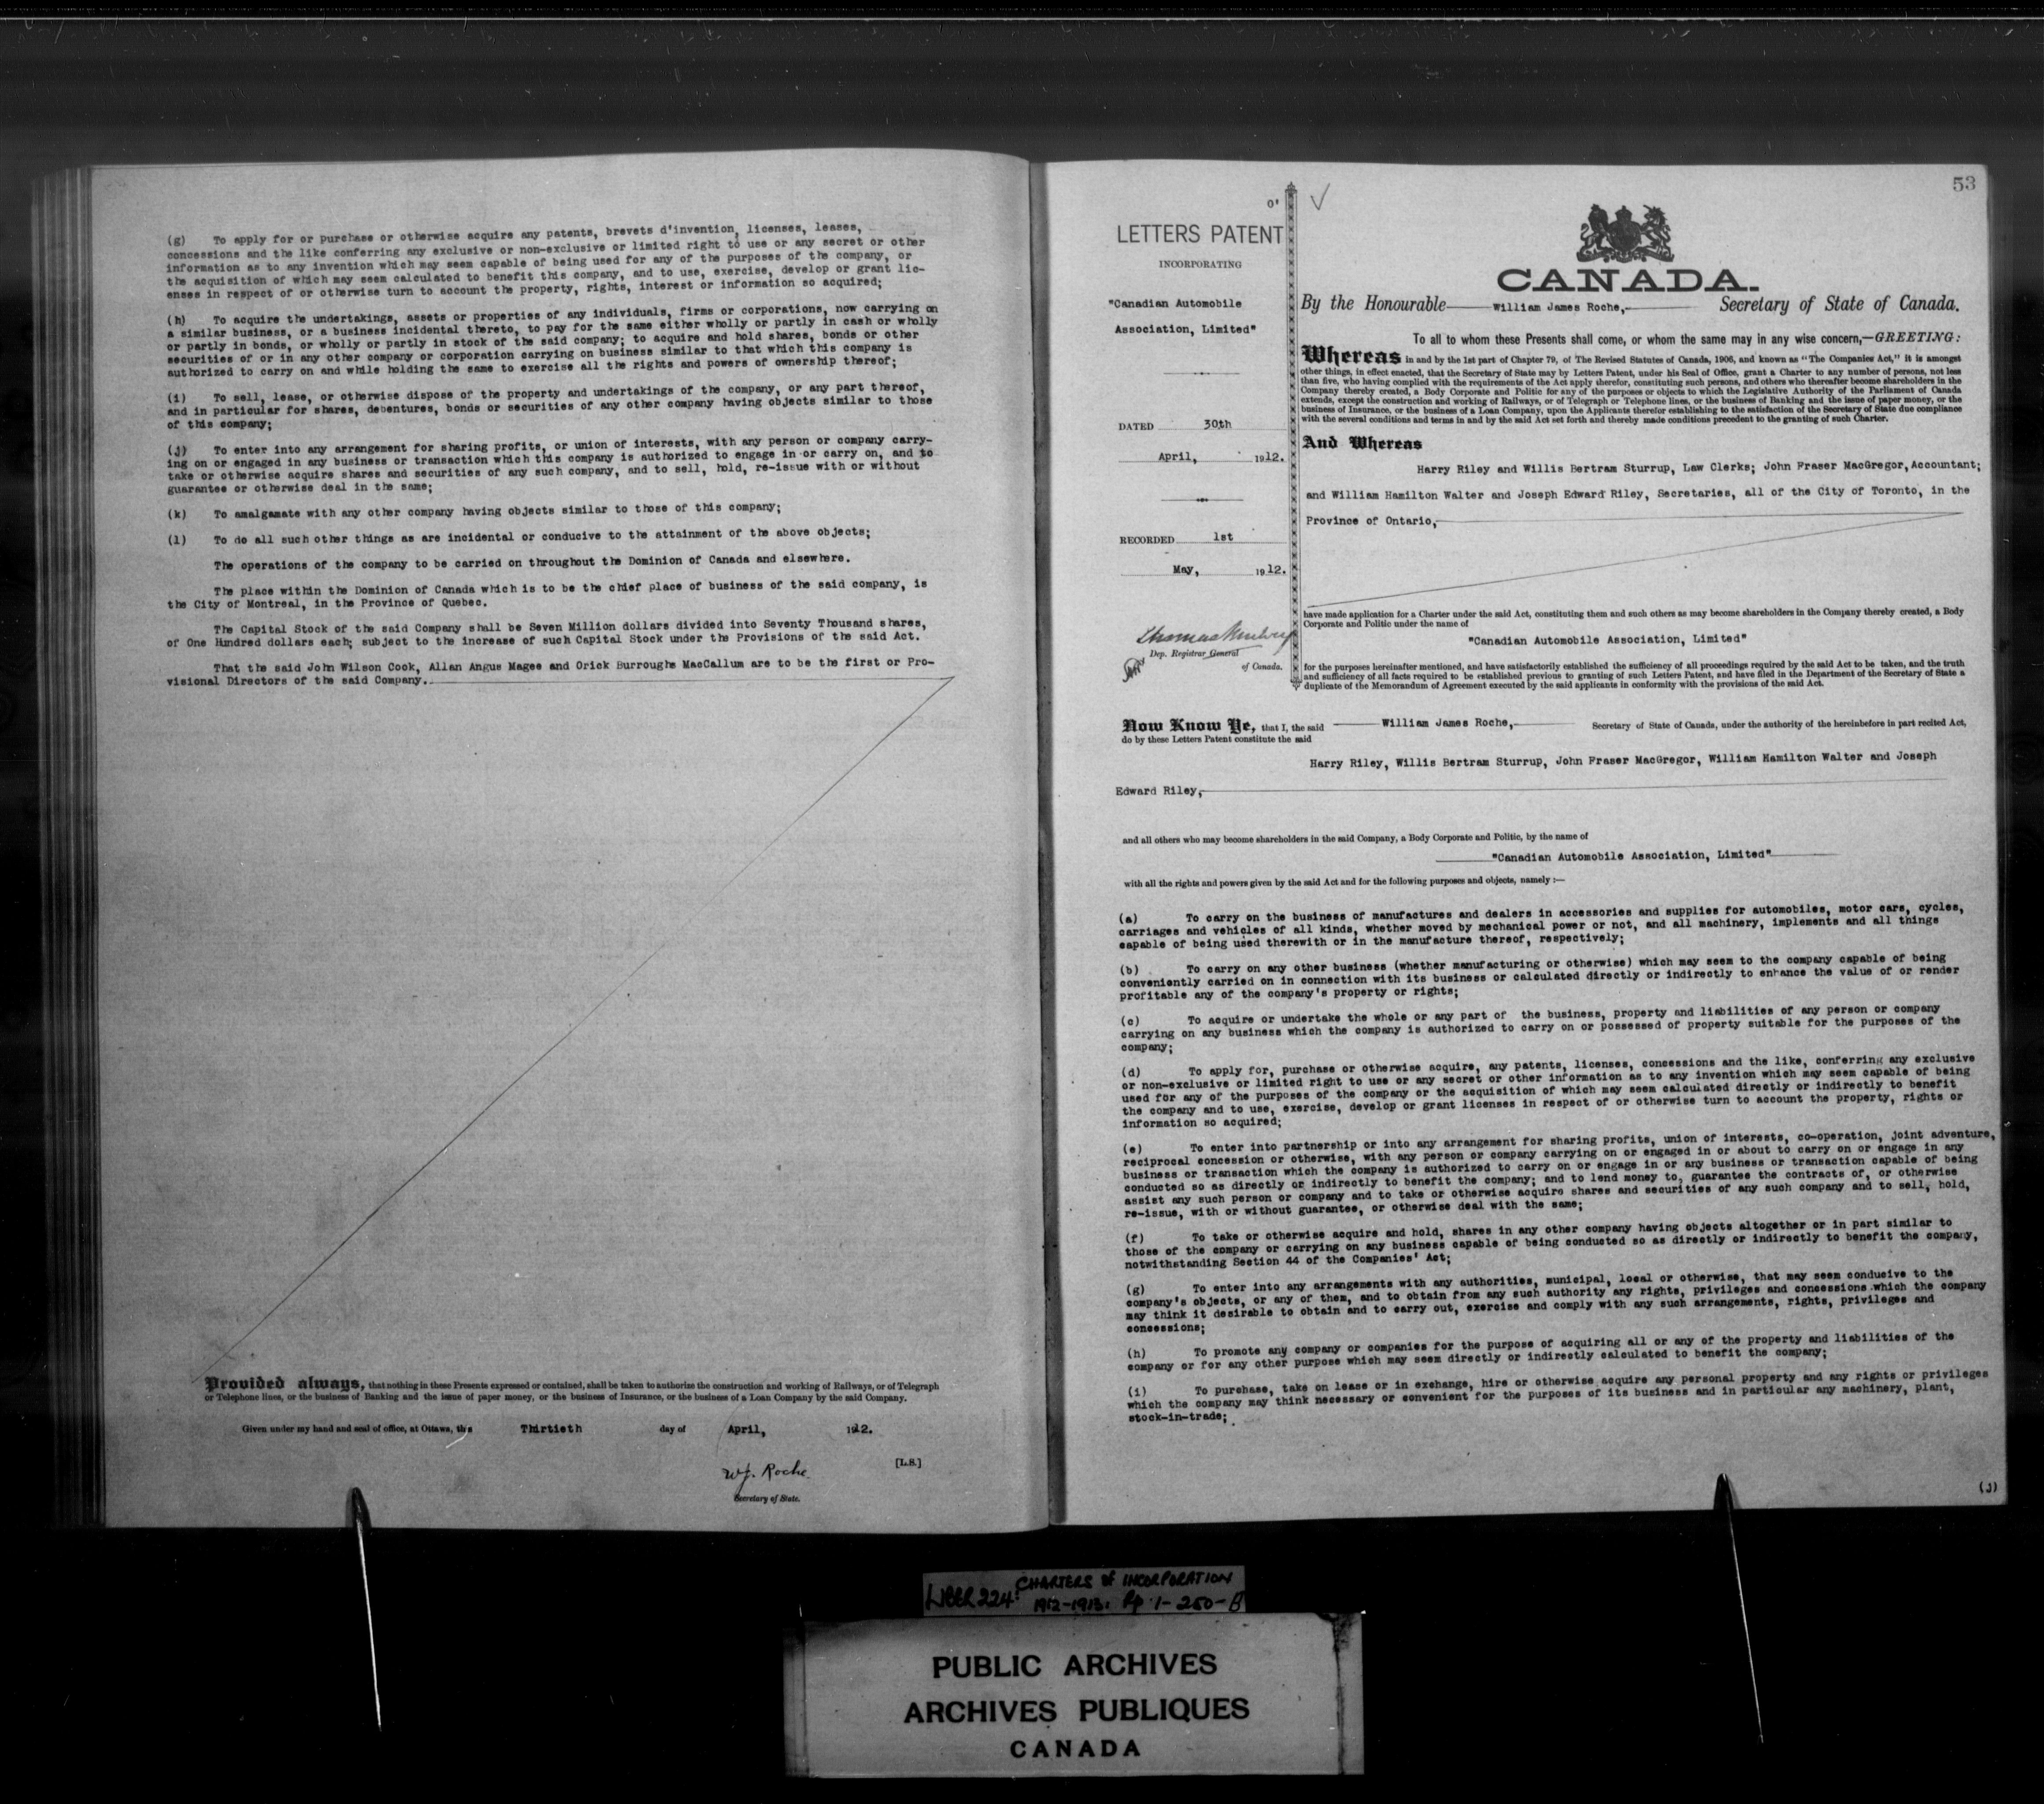 (g) To apply for or purchase or otherwise acquire any patents, brevets d'invention, licenses, leases,
concessions and the like conferring any exclusive or non-exclusive or limited right to use or any secret or other
information as to any invention which may seem capable of being used for any of the purposes of the company, or
the acquisition of which may seem calculated to benefit this company, and to use, exercise, develop or grant lic-
enses in respect of or otherwise turn to account the property, rights, interest or information so acquired;
(h) To acquire the undertakings, assets or properties of any individuals, firms or corporations, now carrying on
a similar business, or a business incidental thereto, to pay for the same either wholly or partly in cash or wholly
or partly in bonds, or wholly or partly in stock of the said company; to acquire and hold shares, bonds or other
securities of or in any other company or corporation carrying on business similar to that which this company is
authorized to carry on and while holding the same to exercise all the rights and powers of ownership thereof;
(i) To sell, lease, or otherwise dispose of the property and undertakings of the company, or any part thereof,
and in particular for shares, debentures, bonds or securities of any other company having objects similar to those
of this company;
(j) To enter into any arrangement for sharing profits, or union of interests, with any person or company carry-
ing on or engaged in any business or transaction which this company is authorized to engage in or carry on, and to
take or otherwise acquire shares and securities of any such company, and to sell, hold, re-issue with or without
guarantee or otherwise deal in the same;
(k) To amalgamate with any other company having objects similar to those of this company;
(l) To do all such other things as are incidental or conducive to the attainment of the above objects;
The operations of the company to be carried on throughout the Dominion of Canada and elsewhere.
The place within the Dominion of Canada which is to be the chief place of business of the said company, is
the City of Montreal, in the Province of Quebec.
The Capital Stock of the said Company shall be Seven Million dollars divided into Seventy Thousand shares,
of One Hundred dollars each; subject to the increase of such Capital Stock under the Provisions of the said Act.
That the said John Wilson Cook, Allan Angus Magee and Orick Burroughs MacCallum are to be the first or Pro-
visional Directors of the said Company.
Provided always, that nothing in these Presents expressed or contained, shall be taken to authorize the construction and working of Railways, or of Telegraph
or Telephone lines, or the business of Banking and the issue of paper money, or the business of Insurance, or the business of a Loan Company by the said Company.
Given under my hand and seal of office, at Ottawa, this Thirtieth day of April, 1912.
[L.S.]
W.J. Roche
Secretary of State.
53
LETTERS PATENT
INCORPORATING
"Canadian Automobile
Association, Limited"
DATED 30th
April, 1912.
RECORDED 1st
May, 1912.
Dep. Registrar General
of Canada.
CANADA.
By the Honourable William James Roche, Secretary of State of Canada.
To all to whom these Presents shall come, or whom the same may in any wise concern,—GREETING:
Whereas in and by the 1st part of Chapter 79, of The Revised Statutes of Canada, 1906, and known as "The Companies Act," it is amongst
other things, in effect enacted, that the Secretary of State may by Letters Patent, under his Seal of Office, grant a Charter to any number of persons, not less
than five, who having complied with the requirements of the Act apply therefor, constituting such persons, and others who thereafter become shareholders in the
Company thereby created, a Body Corporate and Politic for any of the purposes or objects to which the Legislative Authority of the Parliament of Canada
extends, except the construction and working of Railways, or of Telegraph or Telephone lines, or the business of Banking and the issue of paper money, or the
business of Insurance, or the business of a Loan Company, upon the Applicants therefor establishing to the satisfaction of the Secretary of State due compliance
with the several conditions and terms in and by the said Act set forth and thereby made conditions precedent to the granting of such Charter.
And Whereas
Harry Riley and Willis Bertram Sturrup, Law Clerks; John Fraser MacGregor, Accountant;
and William Hamilton Walter and Joseph Edward Riley, Secretaries, all of the City of Toronto, in the
Province of Ontario,
have made application for a Charter under the said Act, constituting them and such others as may become shareholders in the Company thereby created, a Body
Corporate and Politic under the name of
"Canadian Automobile Association, Limited"
for the purposes hereinafter mentioned, and have satisfactorily established the sufficiency of all proceedings required by the said Act to be taken, and the truth
and sufficiency of all facts required to be established previous to granting of such Letters Patent, and have filed in the Department of the Secretary of State a
duplicate of the Memorandum of Agreement executed by the said applicants in conformity with the provisions of the said Act.
Now Know Ye, that I, the said William James Roche, Secretary of State of Canada, under the authority of the hereinbefore in part recited Act,
do by these Letters Patent constitute the said
Harry Riley, Willis Bertram Sturrup, John Fraser MacGregor, William Hamilton Walter and Joseph
Edward Riley,
and all others who may become shareholders in the said Company, a Body Corporate and Politic, by the name of
"Canadian Automobile Association, Limited"
with all the rights and powers given by the said Act and for the following purposes and objects, namely :—
(a) To carry on the business of manufactures and dealers in accessories and supplies for automobiles, motor cars, cycles,
carriages and vehicles of all kinds, whether moved by mechanical power or not, and all machinery, implements and all things
capable of being used therewith or in the manufacture thereof, respectively;
(b) To carry on any other business (whether manufacturing or otherwise) which may seem to the company capable of being
conveniently carried on in connection with its business or calculated directly or indirectly to enhance the value of or render
profitable any of the company's property or rights;
(c) To acquire or undertake the whole or any part of the business, property and liabilities of any person or company
carrying on any business which the company is authorized to carry on or possessed of property suitable for the purposes of the
company;
(d) To apply for, purchase or otherwise acquire, any patents, licenses, concessions and the like, conferring any exclusive
or non-exclusive or limited right to use or any secret or other information as to any invention which may seem capable of being
used for any of the purposes of the company or the acquisition of which may seem calculated directly or indirectly to benefit
the company and to use, exercise, develop or grant licenses in respect of or otherwise turn to account the property, rights or
information so acquired;
(e) To enter into partnership or into any arrangement for sharing profits, union of interests, co-operation, joint adventure,
reciprocal concession or otherwise, with any person or company carrying on or engaged in or about to carry on or engage in any
business or transaction which the company is authorized to carry on or engage in or any business or transaction capable of being
conducted so as directly or indirectly to benefit the company; and to lend money to, guarantee the contracts of, or otherwise
assist any such person or company and to take or otherwise acquire shares and securities of any such company and to sell, hold,
re-issue, with or without guarantee, or otherwise deal with the same;
(f) To take or otherwise acquire and hold, shares in any other company having objects altogether or in part similar to
those of the company or carrying on any business capable of being conducted so as directly or indirectly to benefit the company,
notwithstanding Section 44 of the Companies' Act;
(g) To enter into any arrangements with any authorities, municipal, local or otherwise, that may seem conducive to the
company's objects, or any of them, and to obtain from any such authority any rights, privileges and concessions which the company
may think it desirable to obtain and to carry out, exercise and comply with any such arrangements, rights, privileges and
concessions;
(h) To promote any company or companies for the purpose of acquiring all or any of the property and liabilities of the
company or for any other purpose which may seem directly or indirectly calculated to benefit the company;
(i) To purchase, take on lease or in exchange, hire or otherwise acquire any personal property and any rights or privileges
which the company may think necessary or convenient for the purposes of its business and in particular any machinery, plant,
stock-in-trade;
(j)
LIBER 224: CHARTERS of INCORPORATION
1912-1913. Pp 1-250-B
PUBLIC ARCHIVES
ARCHIVES PUBLIQUES
CANADA